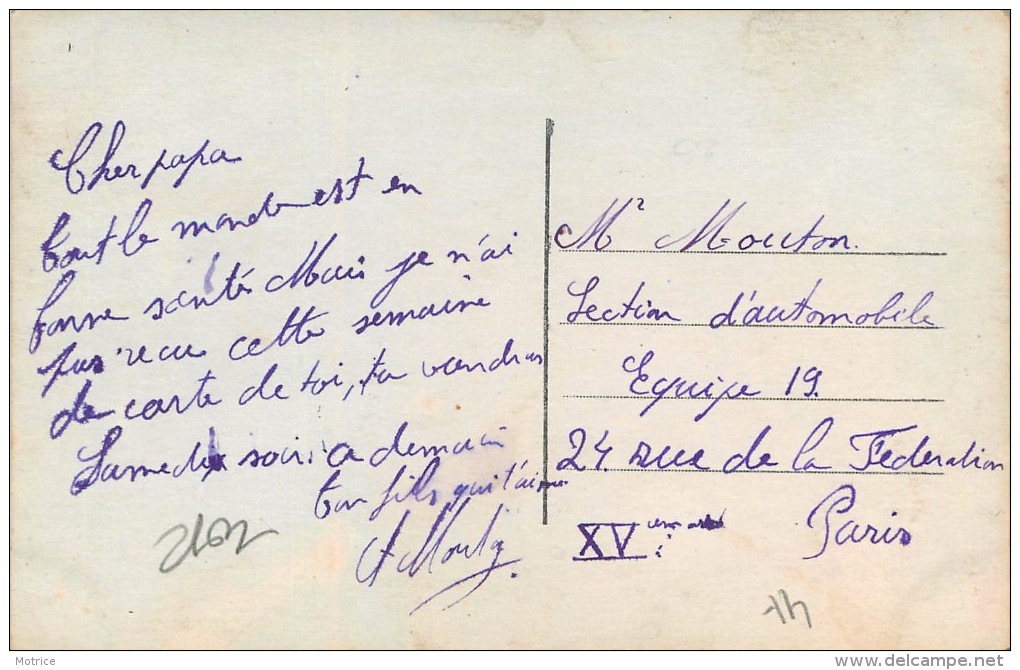 Cher papa
tout le monde est en
bonne santé Mais je n'ai
pas recu cette semaine
de carte de toi, tu vendras
Samedi soir. a demain
ton fils qui t'aime
Mr Mouton.
Section d'automobile
Equipe 19.
24. rue de la Federation
Paris
XV
Motrice
http://www.delcampe.net